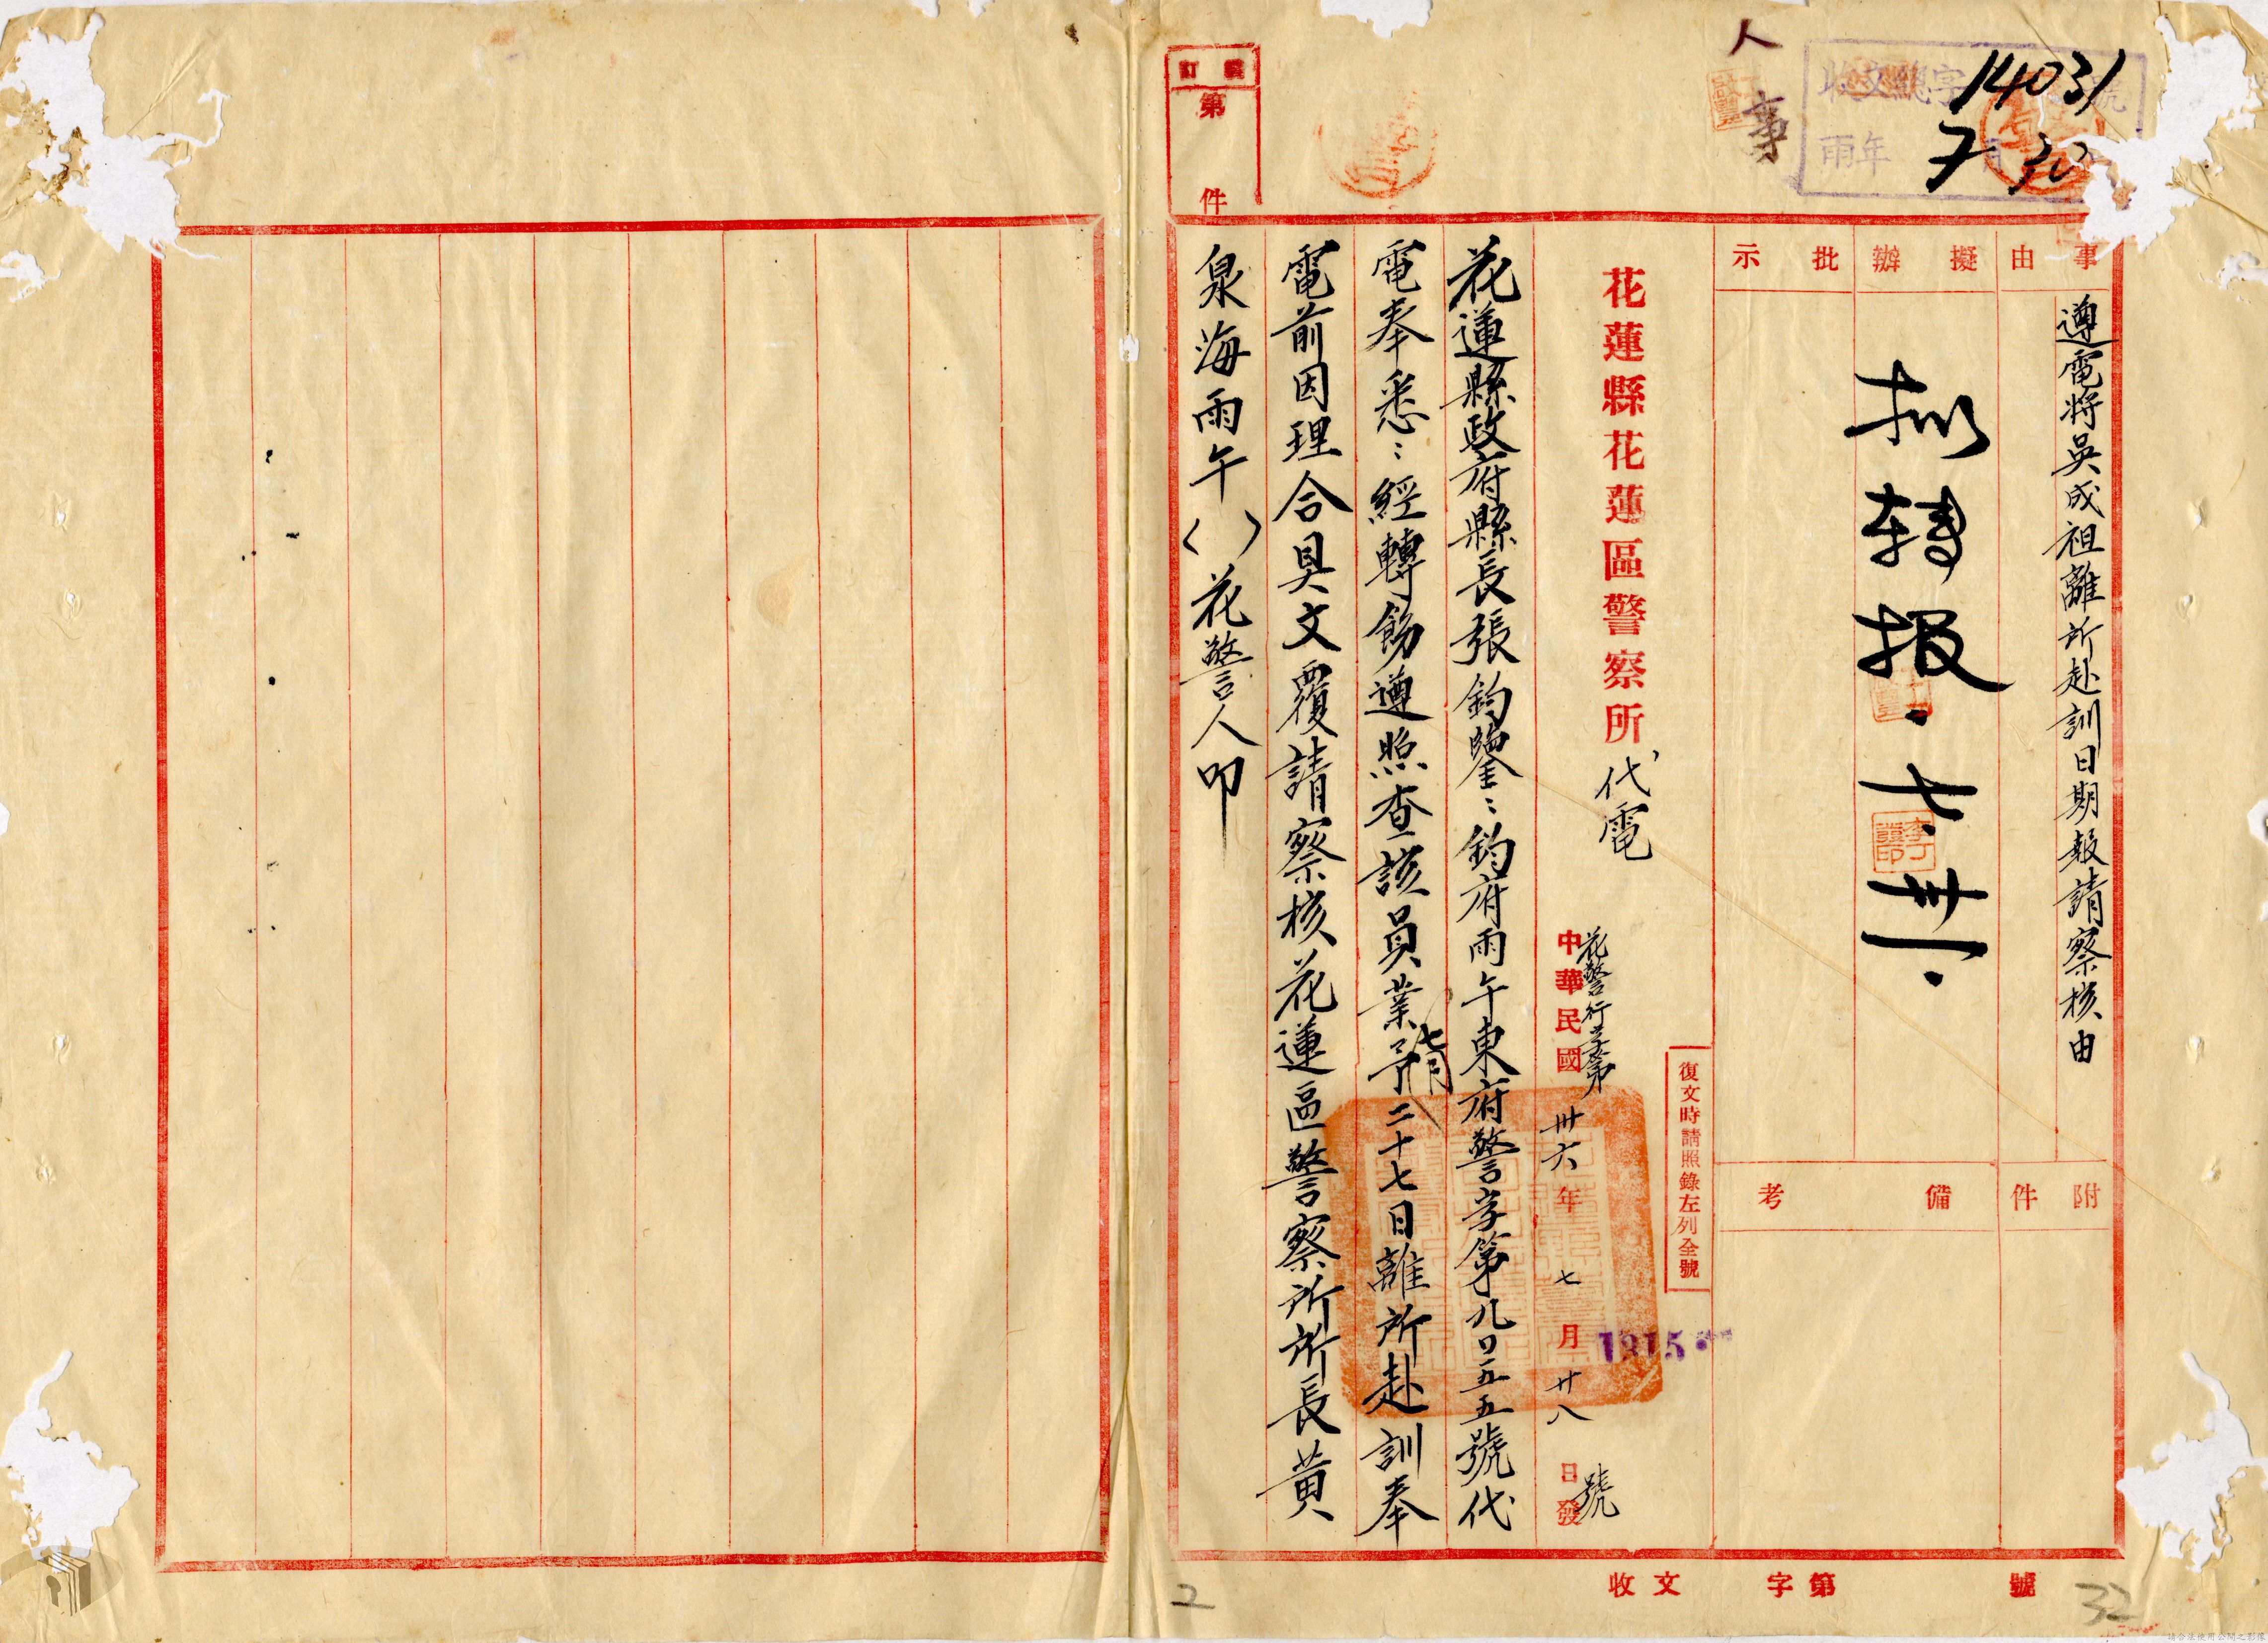 人事
收文總字 14031 號
雨年 7月 30
裝訂
第 件
事由
遵電將吳成祖離所赴訓日期報請察核由
擬辦
批示
拟轉报．七．卅一．
附件
備考
復文時請照錄左列全號
花蓮縣花蓮區警察所代電
花警行字第 1315 號
中華民國卅六年七月廿八日發
花蓮縣政府縣長張鈞鑒：鈞府雨午東府警字第九〇五五號代
電奉悉：經轉飭遵照查該員業於七月二十七日離所赴訓奉
電前因理合具文覆請察核花蓮區警察所所長黃
泉海雨午（ ）花警人叩
收文 字第 號
2
32